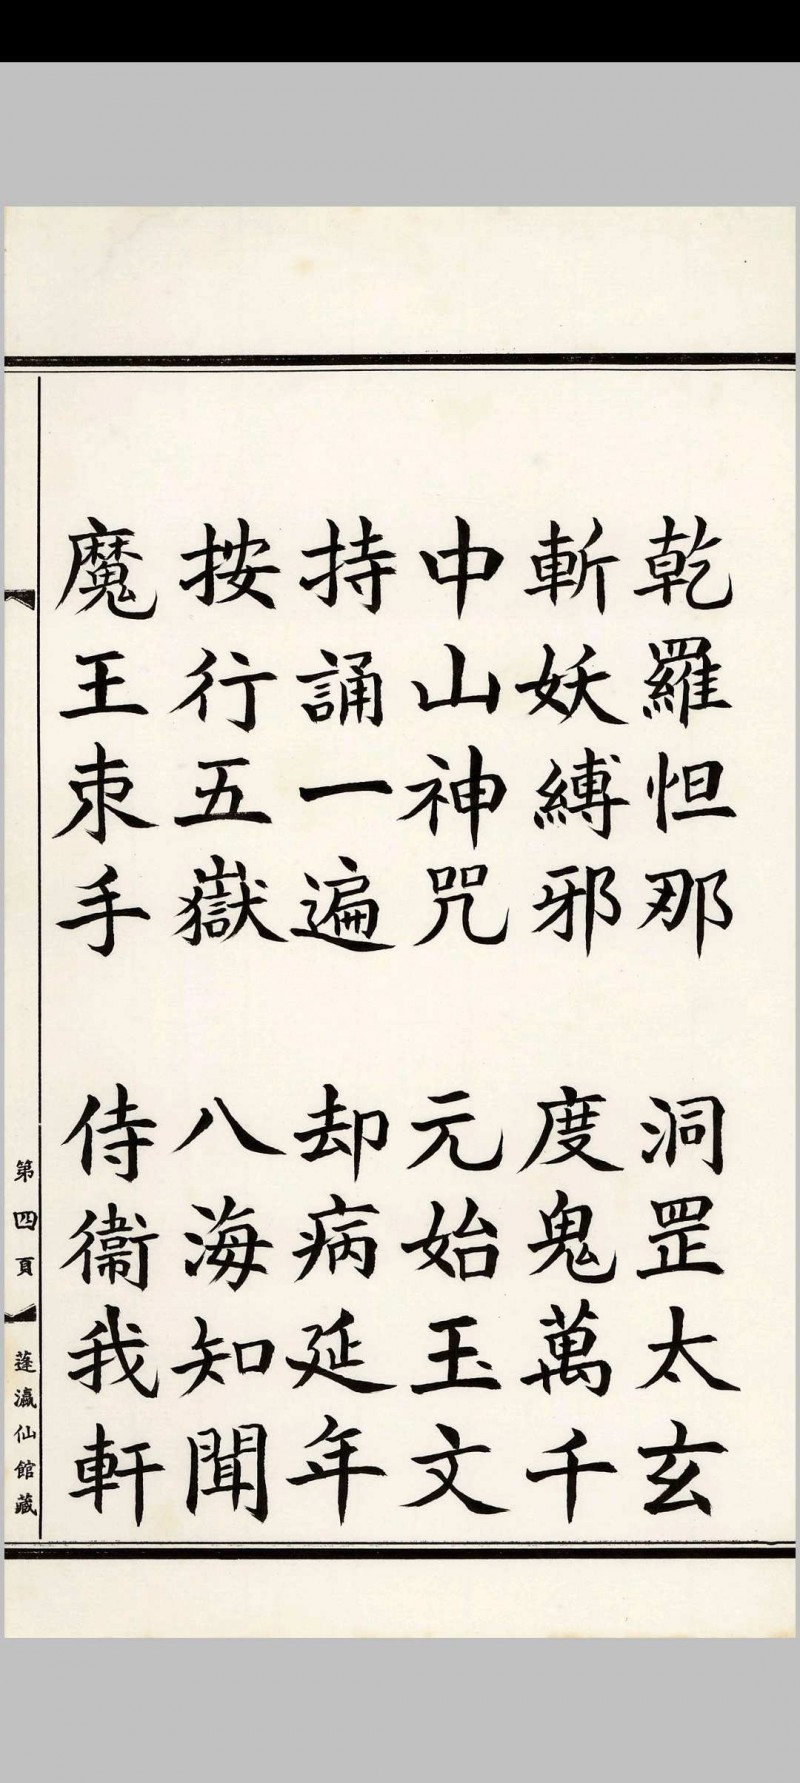 乾羅怛那　洞罡太玄
斬妖縛邪　度鬼萬千
中山神咒　元始玉文
持誦一遍　却病延年
按行五嶽　八海知聞
魔王束手　侍衞我軒
第四頁
蓬瀛仙館藏